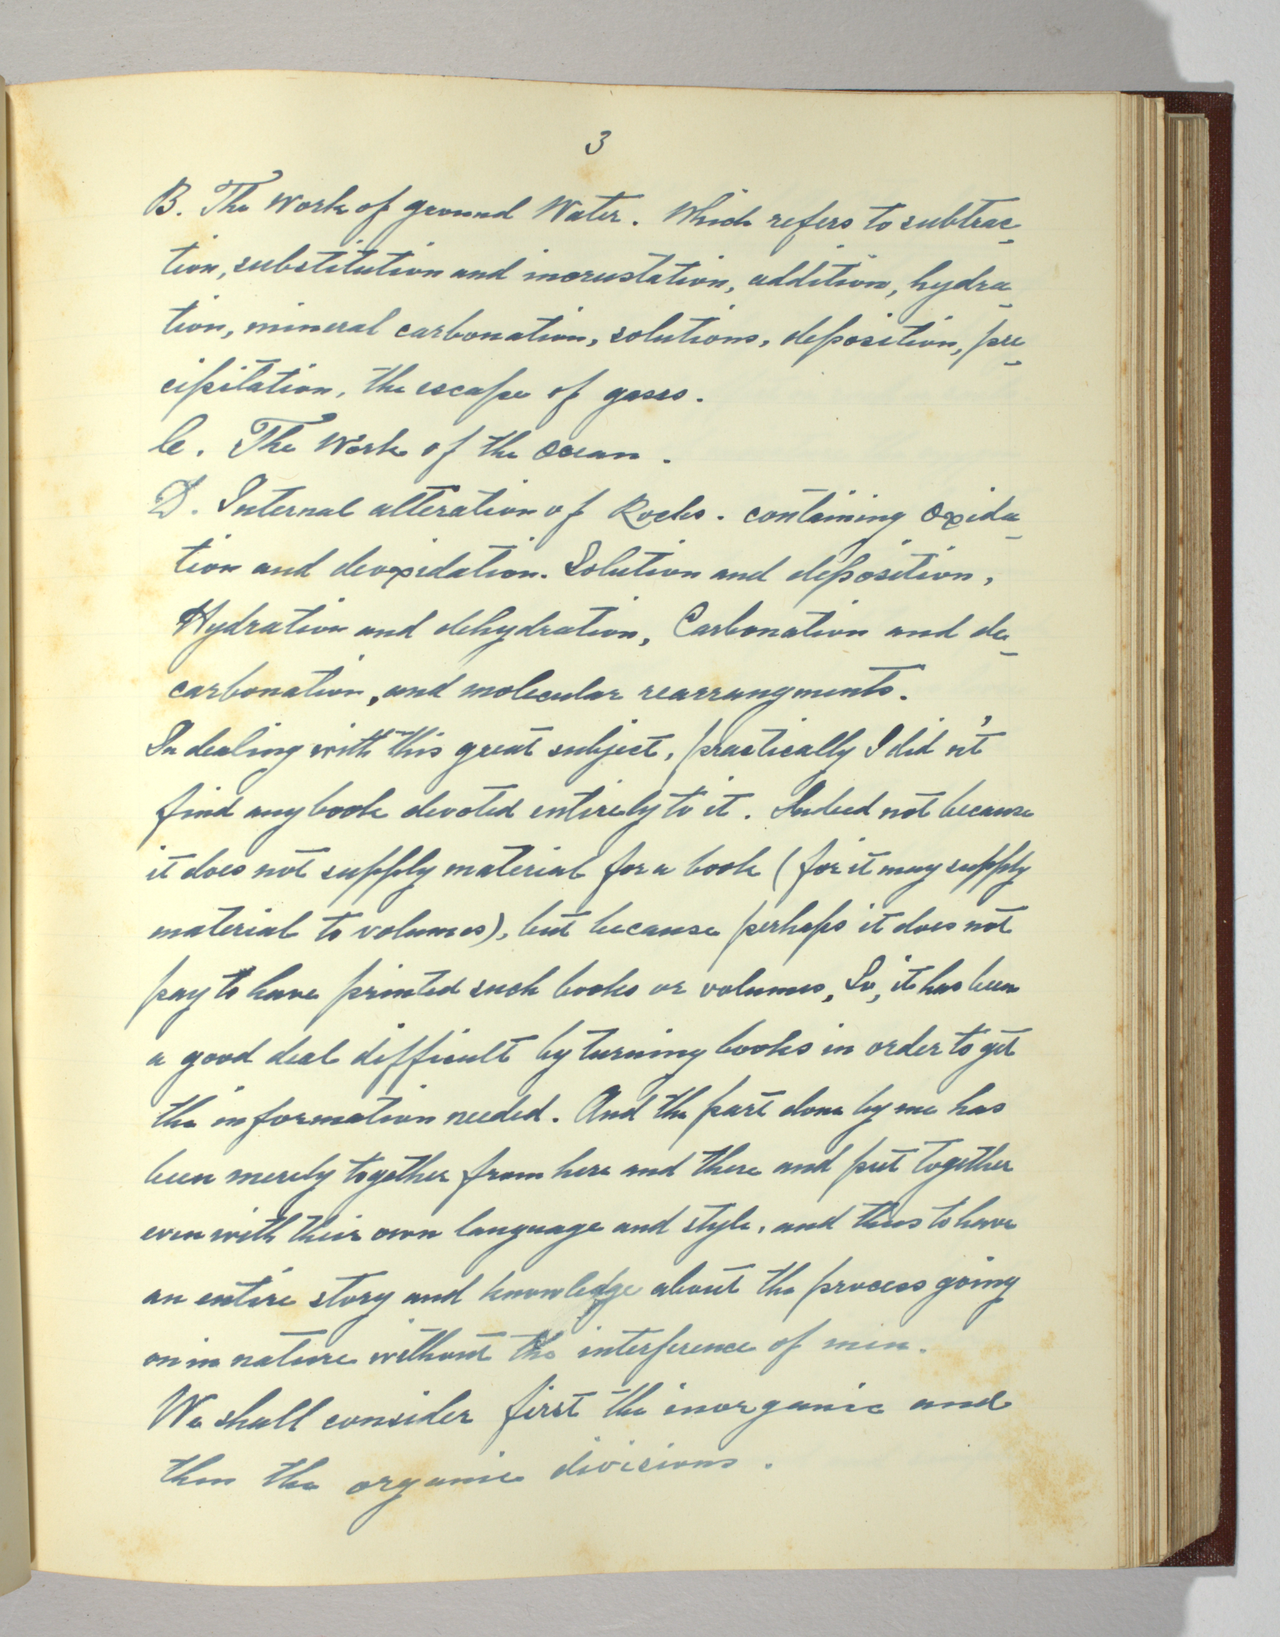 3
B. The Work of ground Water. Which refers to subtrac-
tion, substitution and incrustation, addition, hydra-
tion, mineral carbonation, solutions, deposition, pre-
cipitation, the escape of gases.
C. The Work of the Ocean.
D. Internal alteration of Rocks. containing Oxida-
tion and deoxidation. Solution and deposition,
Hydration and dehydration, Carbonation and de-
carbonation, and molecular rearrangments.
In dealing with this great subject, practically I did n't
find any book devoted entirely to it. Indeed not because
it does not supply material for a book (for it may supply
material to volumes), but because perhaps it does not
pay to have printed such books or volumes, So, it has been
a good deal difficult by turning books in order to get
the information needed. And the part done by me has
been merely together from here and there and put together
even with their own language and style, and thus to have
an entire story and knowledge about the process going
on in nature without the interference of men.
We shall consider first the inorganic and
then the organic divisions.